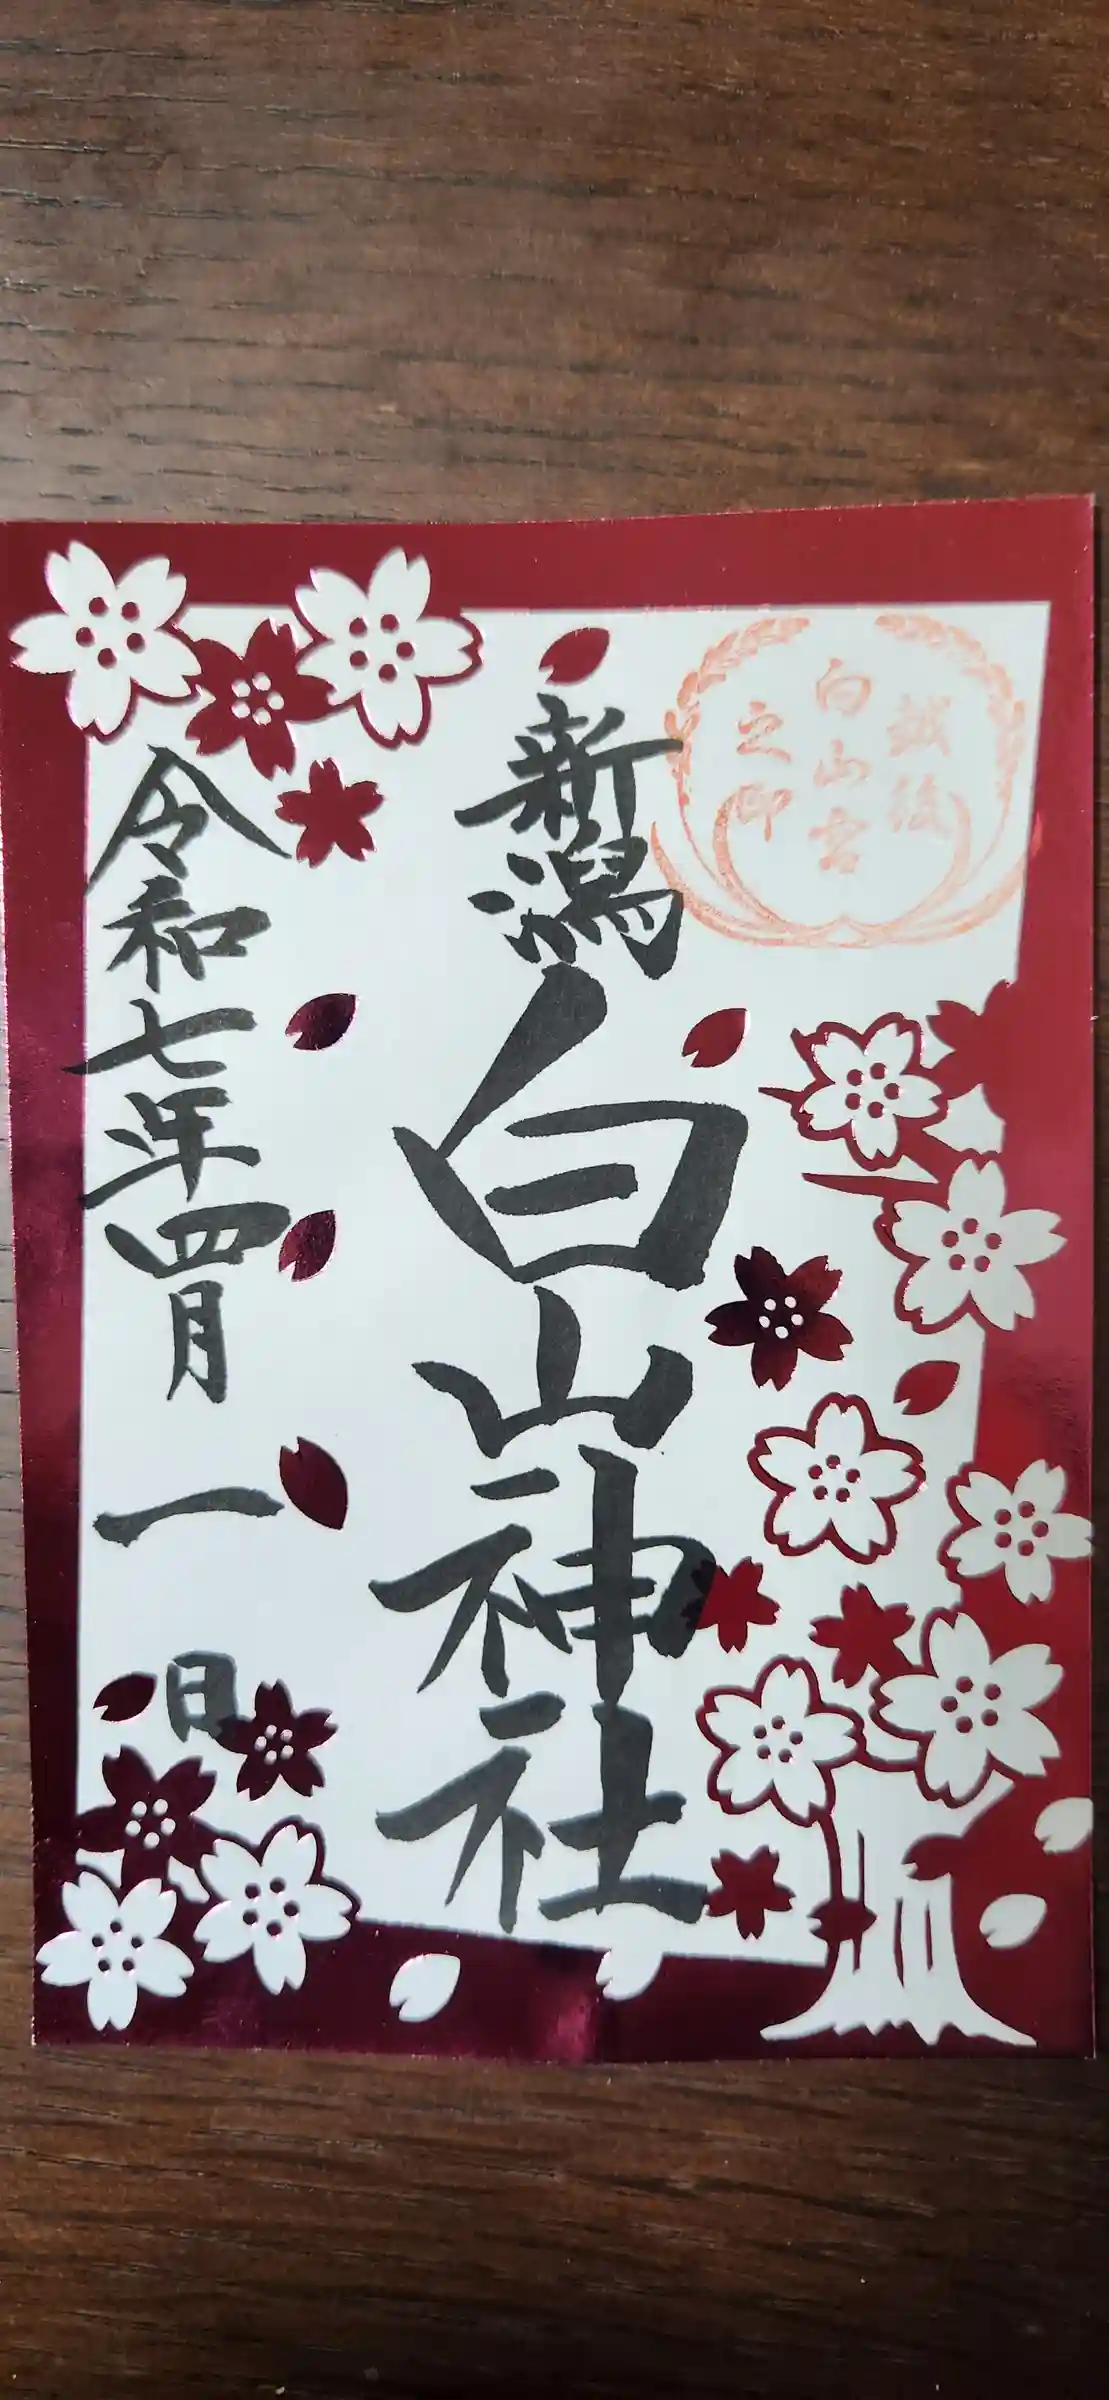 越後
白山宮
之御
新潟
白山神社
令和七年四月一日